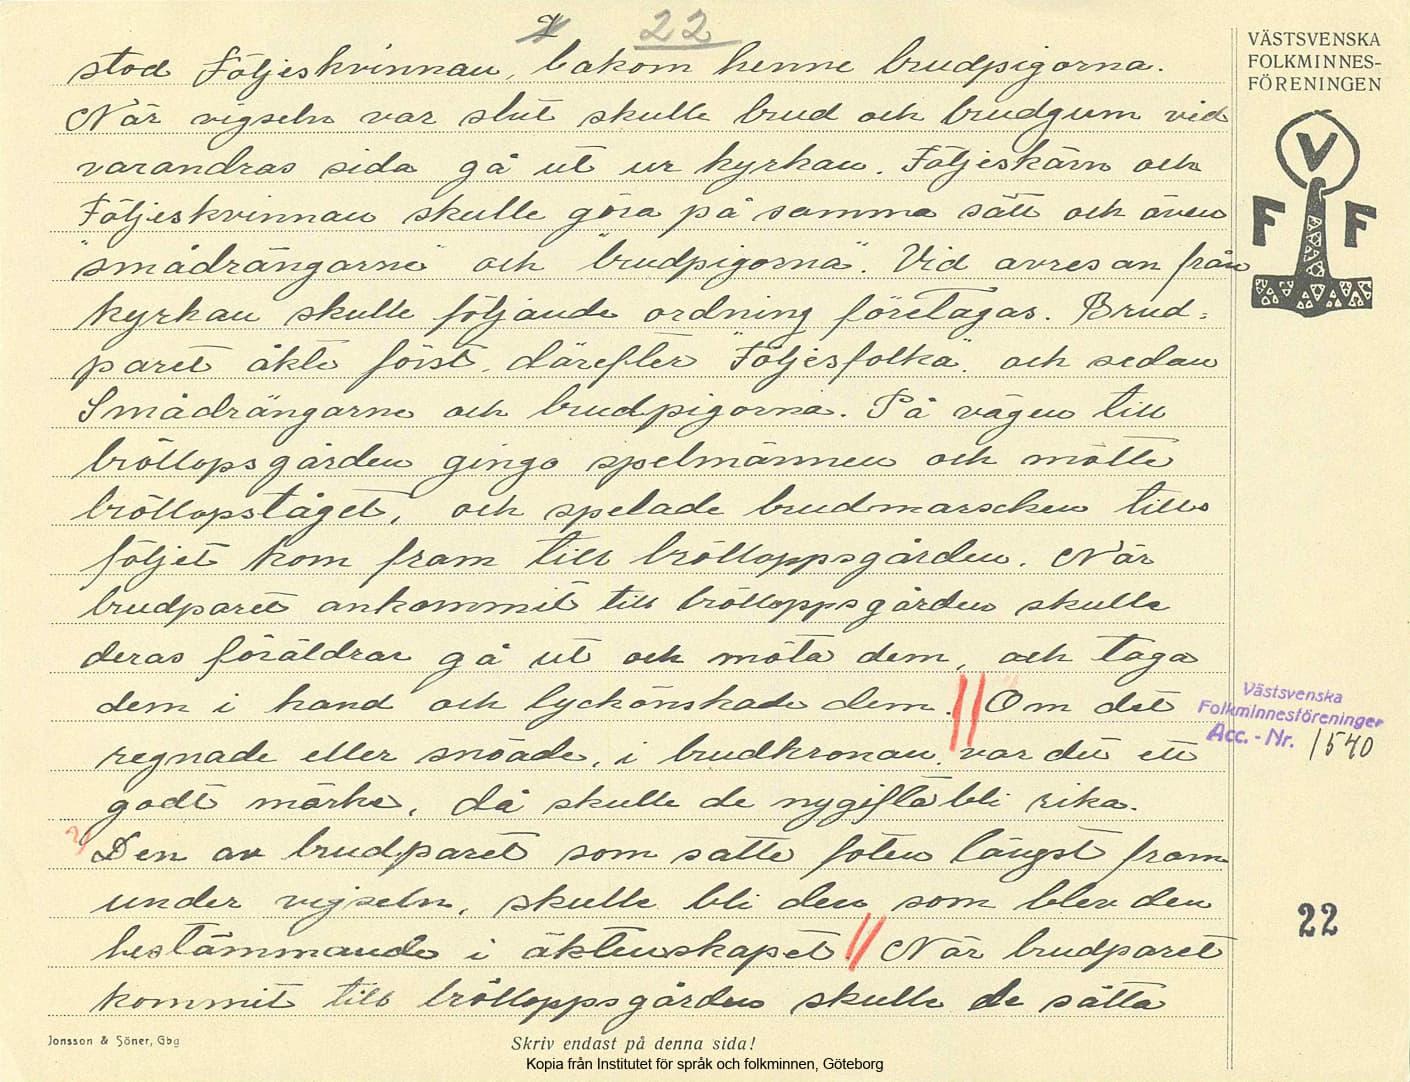 22
stod Följeskvinnan, bakom henne brudpigorna.
När vigseln var slut skulle brud och brudgum vid
varandras sida gå ut ur kyrkan. Följeskärn och
Följeskvinnan skulle göra på samma sätt och även
"smådrängarne" och "brudpigorna". Vid avresan från
kyrkan skulle följande ordning företagas. Brud-
paret åkte först, därefter "Följesfolka", och sedan
Smådrängarne och brudpigorna. På vägen till
bröllopsgården gingo spelmännen och mötte
bröllopståget, och spelade brudmarschen tills
följet kom fram till brölloppsgården. När
brudparet ankommit till brölloppsgården skulle
deras föräldrar gå ut och möta dem, och taga
dem i hand och lyckönskade dem. // Om det
regnade eller snöade, i brudkronan, var du ett
godt märke, då skulle de nygifta bli rika.
Den av brudparet som satte foten längst fram
under vigseln, skulle bli den som blev den
bestämmande i äktenskapet // När brudparet
kommit till brölloppsgården skulle de sätta
Jonsson & Söner, Gbg
Skriv endast på denna sida!
Kopia från Institutet för språk och folkminnen, Göteborg
VÄSTSVENSKA
FOLKMINNES-
FÖRENINGEN
V
F F
Västsvenska
Folkminnesföreningen
Acc.-Nr. 1540
22